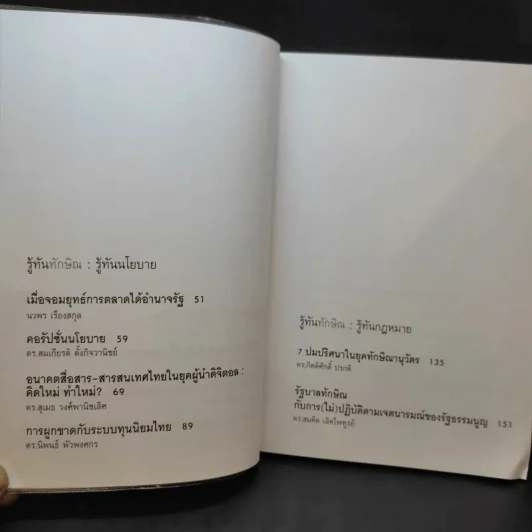 รู้ทันทักษิณ : รู้ทันนโยบาย
เมื่อจอมยุทธ์การตลาดได้อำนาจรัฐ 51
นวพร เรืองสกุล
คอรัปชั่นนโยบาย 59
ดร.สมเกียรติ ตั้งกิจวานิชย์
อนาคตสื่อสาร-สารสนเทศไทยในยุคผู้นำดิจิตอล :
คิดใหม่ ทำใหม่? 69
ดร.สุเมธ วงศ์พานิชเลิศ
การผูกขาดกับระบบทุนนิยมไทย 89
ดร.นิพนธ์ พัวพงศกร
รู้ทันทักษิณ : รู้ทันกฎหมาย
7 ปมปริศนาในยุคทักษิณานุวัตร 135
ดร.กิตติศักดิ์ ปรกติ
รัฐบาลทักษิณ
กับการ(ไม่)ปฏิบัติตามเจตนารมณ์ของรัฐธรรมนูญ 151
ดร.สมคิด เลิศไพฑูรย์